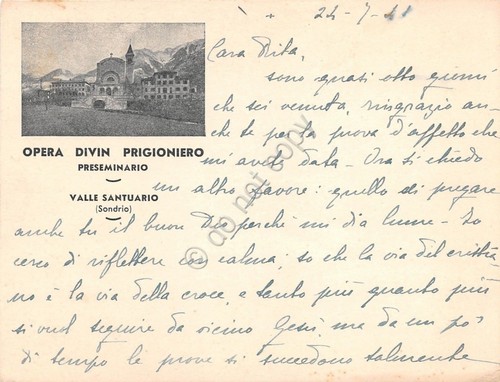 24-7-41
Cara Rita,
sono quasi otto giorni
che sei venuta, ringrazio an-
che te per la prova d'affetto che
mi avete data. Ora ti chiedo
OPERA DIVIN PRIGIONIERO
PRESEMINARIO
VALLE SANTUARIO
(Sondrio)
un altro favore: quello di pregare
anche tu il buon Dio perché mi dia lume. Io
cerco di riflettere con calma; so che la via del cristia-
no è la via della croce, e tanto più quanto più
si vuol seguire da vicino Gesù, ma da un po'
di tempo le prove si succedono talmente
do not copy